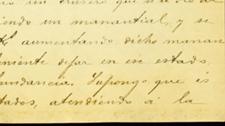 un manantial, y se
aumentando dicho manan
niente dejar en ese estado,
undancia. Supongo que es
tados, atendiendo á la